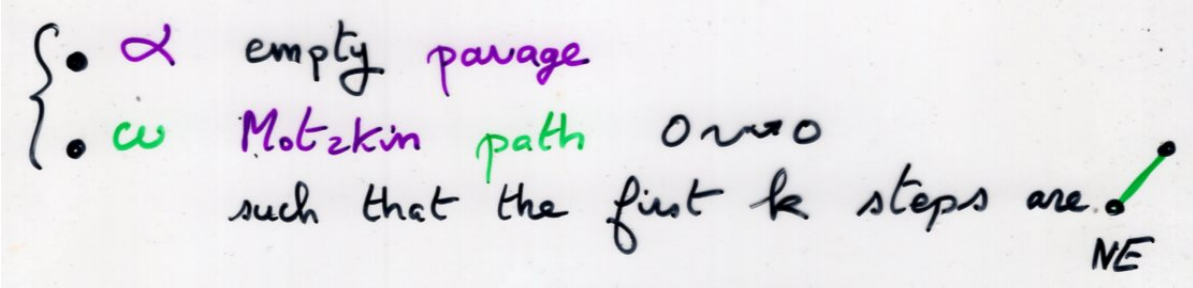 • α empty pavage
• ω Motzkin path 0 ⇝ 0
such that the first k steps are
NE